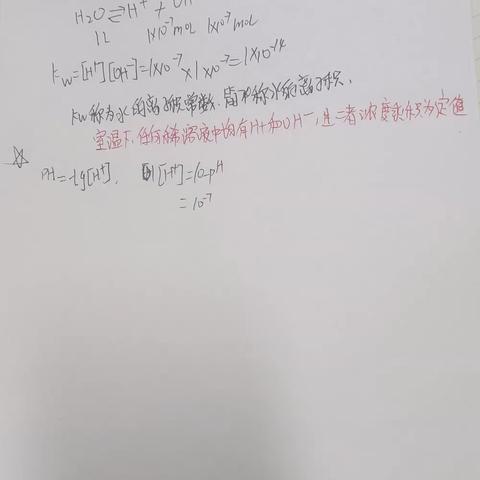 H₂O⇌H⁺ + OH
1L 1×10⁻⁷mol 1×10⁻⁷mol
Kw=[H⁺][OH⁻]=1×10⁻⁷×1×10⁻⁷=1×10⁻¹⁴
Kw称为水的离子积常数.简称水的离子积.
室温下,任何稀溶液中均有H+和OH⁻,且二者浓度乘积为定值
☆
PH=-lg[H⁺]. 则[H⁺]=10-pH
=10⁻⁷